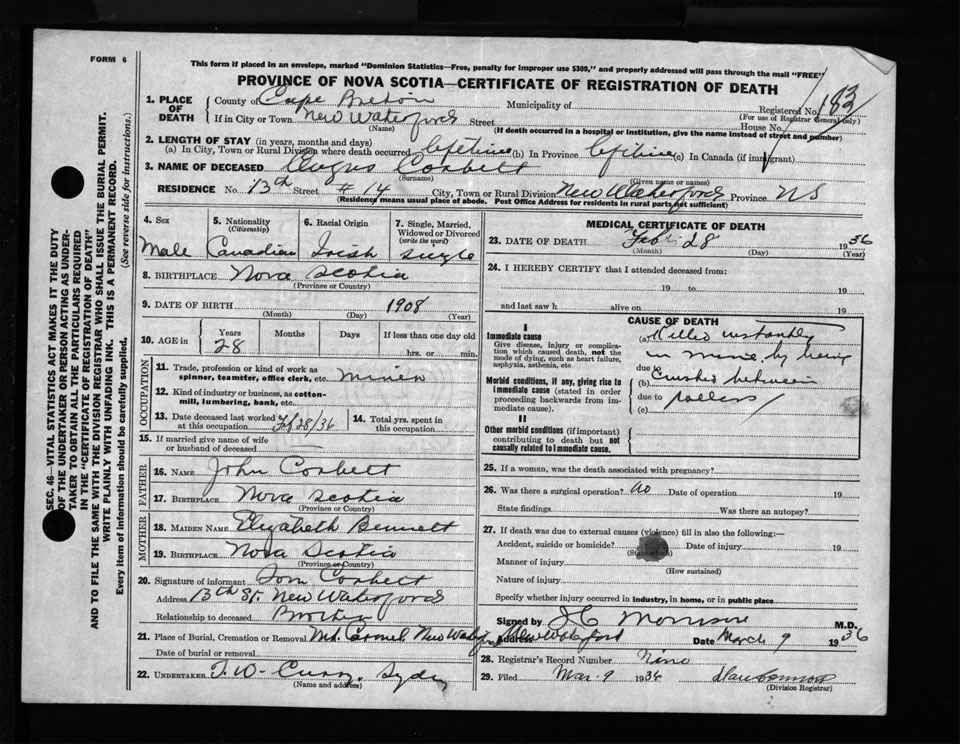 FORM 6
This form if placed in an envelope, marked "Dominion Statistics—Free, penalty for improper use $300," and properly addressed will pass through the mail "FREE"
PROVINCE OF NOVA SCOTIA—CERTIFICATE OF REGISTRATION OF DEATH
SEC. 46—VITAL STATISTICS ACT MAKES IT THE DUTY
OF THE UNDERTAKER OR PERSON ACTING AS UNDER-
TAKER TO OBTAIN ALL THE PARTICULARS REQUIRED
IN THE "CERTIFICATE OF REGISTRATION OF DEATH"
AND TO FILE THE SAME WITH THE DIVISION REGISTRAR WHO SHALL ISSUE THE BURIAL PERMIT.
WRITE PLAINLY WITH UNFADING INK. THIS IS A PERMANENT RECORD.
Every item of information should be carefully supplied. (See reverse side for instructions.)
1. PLACE OF DEATH
County of Cape Breton Municipality of
Registered No. 183
(For use of Registrar General only)
If in City or Town New Waterford Street House No.
(Name) (If death occurred in a hospital or institution, give the name instead of street and number)
2. LENGTH OF STAY (in years, months and days)
(a) In City, Town or Rural Division where death occurred lifetime (b) In Province lifetime (c) In Canada (if immigrant)
3. NAME OF DECEASED Angus Corbett
(Surname) (Given name or names)
RESIDENCE No. 13th Street # 14 City, Town or Rural Division New Waterford Province NS
(Residence means usual place of abode. Post Office Address for residents in rural parts not sufficient)
4. Sex
Male
5. Nationality
(Citizenship)
Canadian
6. Racial Origin
Irish
7. Single, Married,
Widowed or Divorced
(write the word)
single
8. BIRTHPLACE Nova Scotia
(Province or Country)
9. DATE OF BIRTH 1908
(Month) (Day) (Year)
10. AGE in
Years Months Days If less than one day old
28 hrs. or min.
OCCUPATION
11. Trade, profession or kind of work as
spinner, teamster, office clerk, etc. miner
12. Kind of industry or business, as cotton-
mill, lumbering, bank, etc.
13. Date deceased last worked
at this occupation Feb 28/36
14. Total yrs. spent in
this occupation
15. If married give name of wife
or husband of deceased
FATHER
16. NAME John Corbett
17. BIRTHPLACE Nova Scotia
(Province or Country)
MOTHER
18. MAIDEN NAME Elizabeth Bennett
19. BIRTHPLACE Nova Scotia
(Province or Country)
20. Signature of informant Tom Corbett
Address 13th St. New Waterford
Relationship to deceased Brother
21. Place of Burial, Cremation or Removal Mt. Carmel New Waterford
Date of burial or removal
22. UNDERTAKER T. W. Curry, Sydney
(Name and address)
MEDICAL CERTIFICATE OF DEATH
23. DATE OF DEATH Feb. 28 1936
(Month) (Day) (Year)
24. I HEREBY CERTIFY that I attended deceased from:
19 to 19
and last saw h alive on 19
CAUSE OF DEATH
I
Immediate cause
Give disease, injury or compli-
cation which caused death, not the
mode of dying, such as heart failure,
asphyxia, asthenia, etc.
Morbid conditions, if any, giving rise to
immediate cause (stated in order
proceeding backwards from im-
mediate cause).
II
Other morbid conditions (if important)
contributing to death but not
causally related to immediate cause.
(a) Killed instantly
in mine, by being
due to
(b) crushed between
due to rollers
(c)
25. If a woman, was the death associated with pregnancy?
26. Was there a surgical operation? no Date of operation 19
State findings Was there an autopsy?
27. If death was due to external causes (violence) fill in also the following:—
Accident, suicide or homicide? Date of injury 19
(State which)
Manner of injury
(How sustained)
Nature of injury
Specify whether injury occurred in industry, in home, or in public place
Signed by J C Morrison M.D.
Address New Waterford Date March 9 1936
28. Registrar's Record Number Nine
29. Filed Mar-9 1936
(Division Registrar)